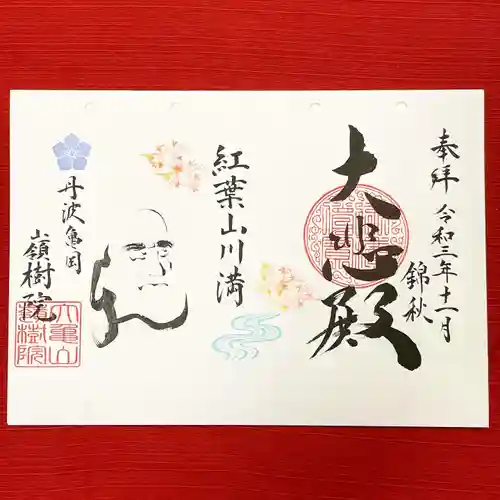 奉拝
令和三年十一月
錦秋
大悲殿
紅葉山川満
丹波亀岡
嶺樹院